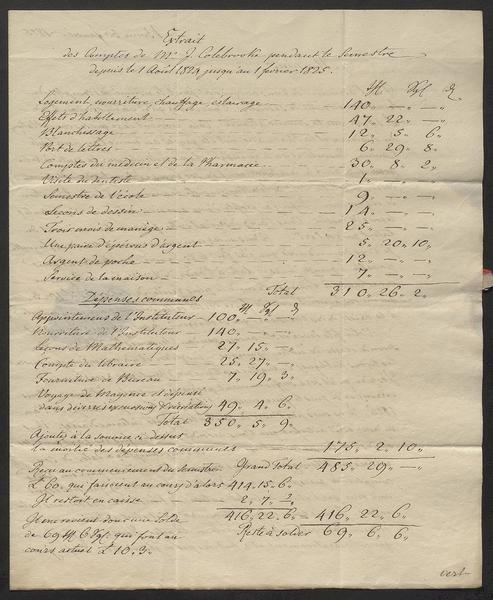 Extrait
des Comptes de Mr. J. Colebrooke pendant le Semestre
depuis le 1 Août 1824 jusqu'au 1 février 1825.
Logement, nourriture, chauffage, éclairage — 140 " — " — "
Effets d'habillement — 47 " 22 " — "
Blanchissage — 12 " 5 " 6 "
Port de lettres — 6 " 29 " 8 "
Comptes du médecin et de la Pharmacie — 30 " 8 " 2 "
Visite du dentiste — 1 " — " — "
Semestre de l'école — 9 " — " — "
Leçons de dessin — 14 " — " — "
Trois mois de manège — 25 " — " — "
Une paire d'éperons d'argent 5 " 20 " 10 "
Argent de poche — 12 " — " — "
Service de la maison — 7 " — " — "
Total 310 " 26 " 2 "
Dépenses communes
Appointemens de l'Instituteur — 100 " — " — "
Nourriture de l'Instituteur 140 " — " — "
Leçons de Mathématiques — 27 " 15 " — "
Compte du libraire 25 " 27 " — "
Fourniture de Bureau 7 " 19 " 3 "
Voyage de Mayence et dépense
dans diverses 49 " 4 " 6 "
Total 350 " 5 " 9 "
Ajoutez à la somme ci dessus
la moitié des dépenses communes — 175 " 2 " 10 "
Reçu au commencement du Semestre Grand Total 485 " 29 " — "
£ 60, qui faisaient au cours d'alors 414 " 15 " 6 "
Il restoit en caisse — 2 " 7 "
416 " 22 " 6 " — 416 " 22 " 6 "
Il en revient donc une Solde Reste à solder 69 " 6 " 6 "
de 69 6 qui font au
cours actuel £ 10 " 3 "
vert